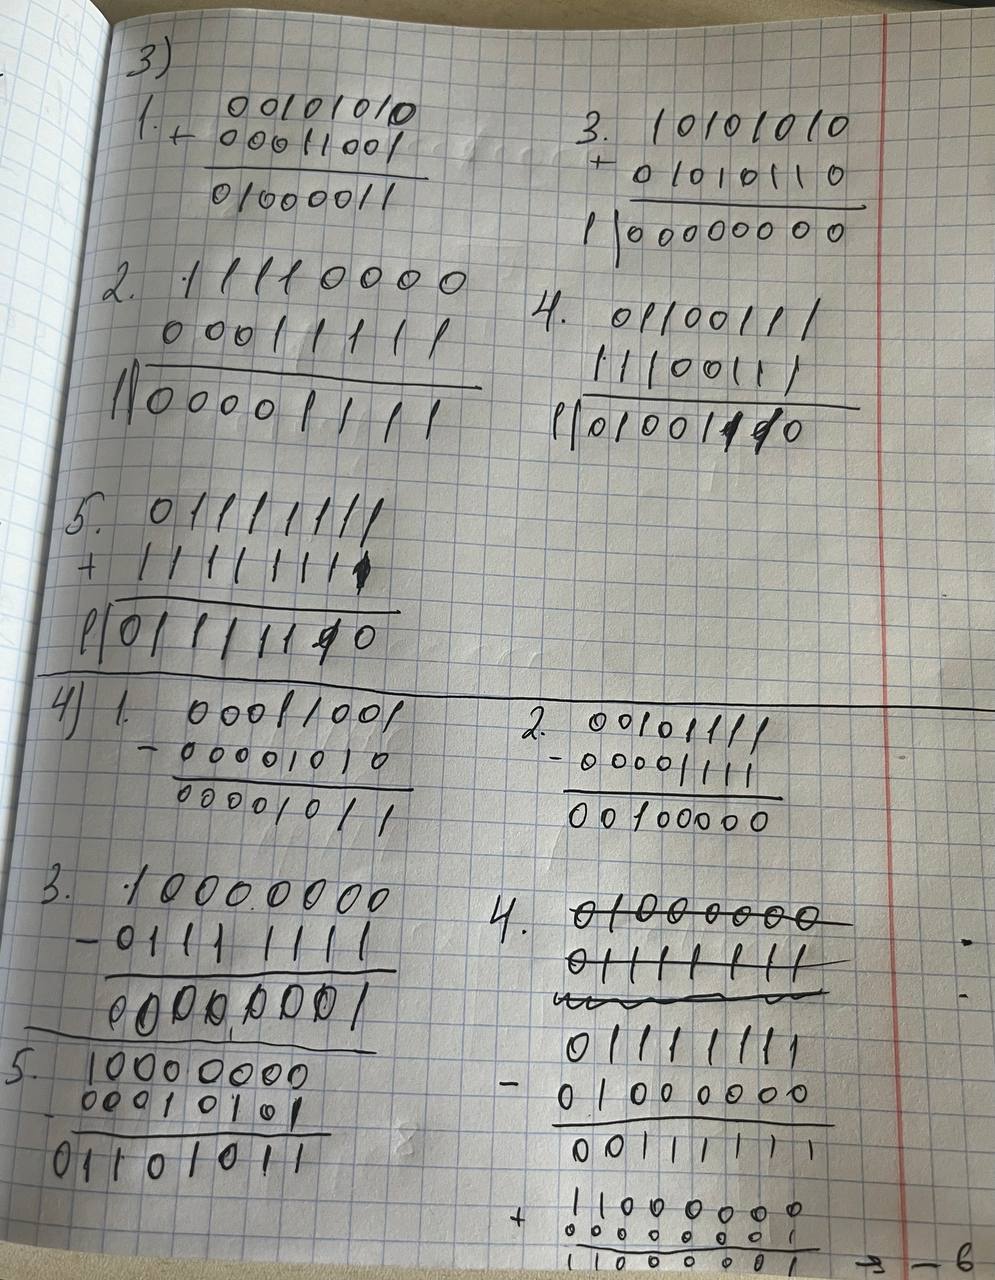 3)
1. 00101010
+ 00011001
01000011
3. 10101010
+ 01010110
1|00000000
2. 11110000
00011111
1|00001111
4. 01100111
11100111
1|01001110
5. 01111111
+ 11111111
1|01111110
4) 1. 00011001
- 00001010
00001011
2. 00101111
- 00001111
00100000
3. 10000000
- 01111111
00000001
4. 01000000
01111111
01111111
- 01000000
00111111
+ 11000000
00000001
11000001 → - 6
5. 10000000
- 00010101
01101011